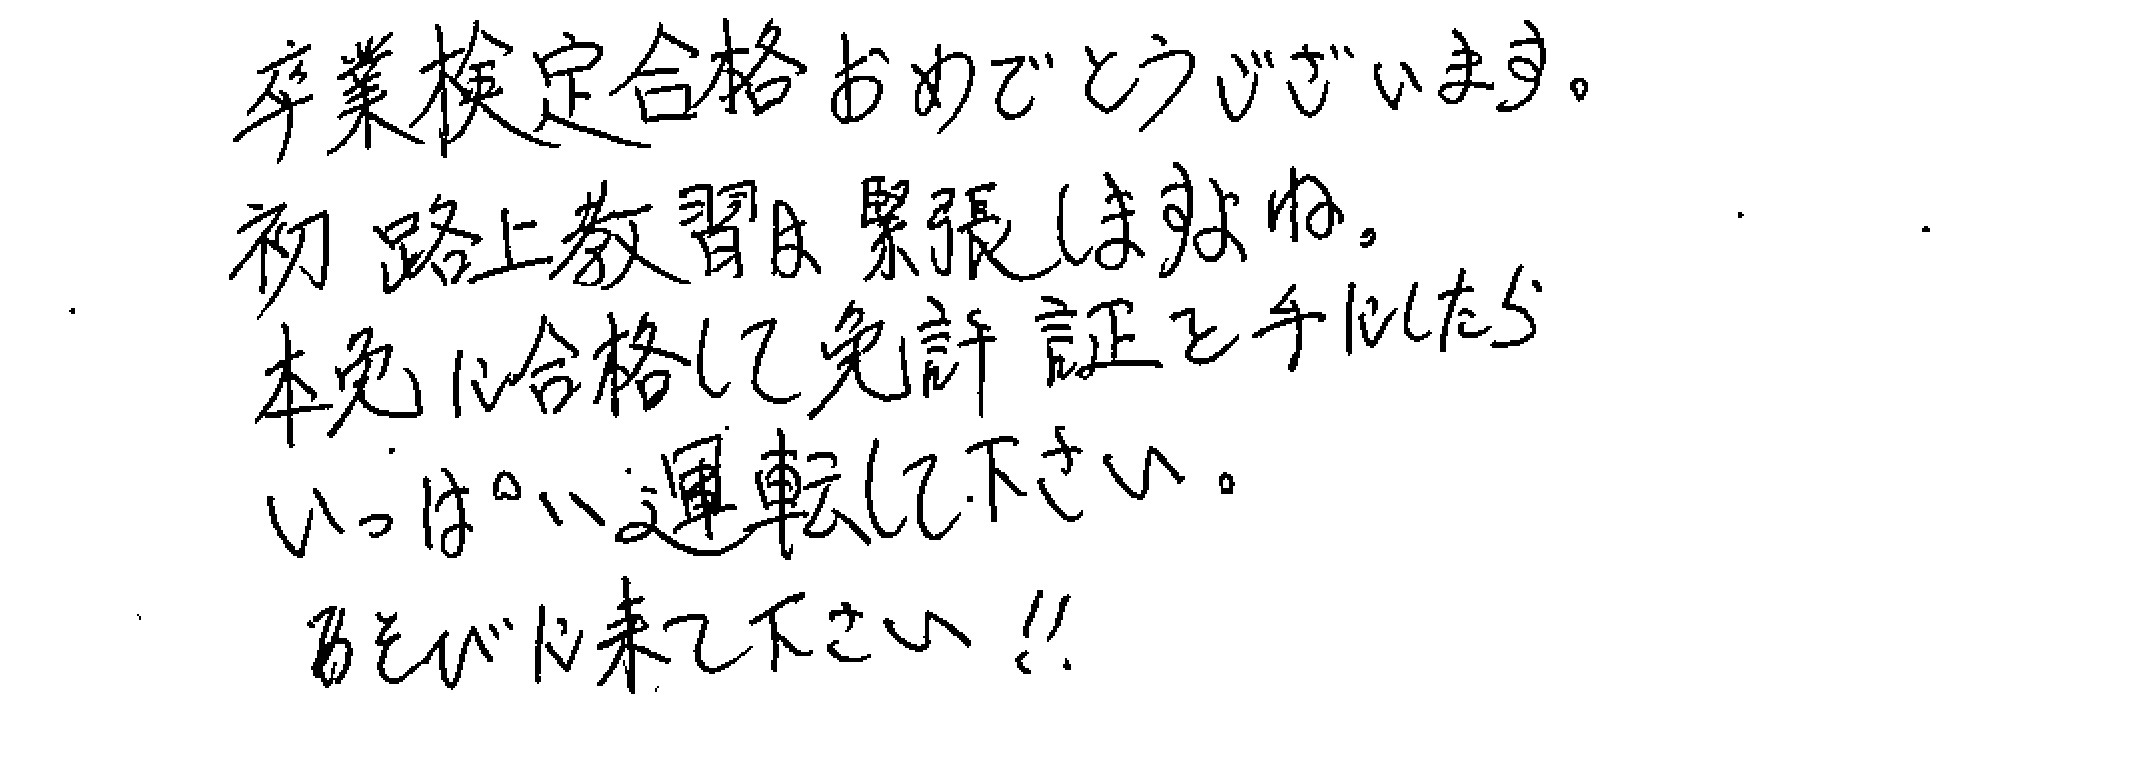 卒業検定合格おめでとうございます。
初路上教習は緊張しますよね。
本免に合格して免許証を手にしたら
いっぱい運転して下さい。
あそびに来て下さい!!